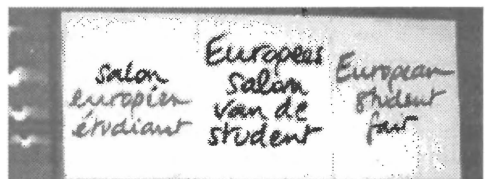 salon
européen
étudiant
Europees
salon
van de
student
European
student
fair